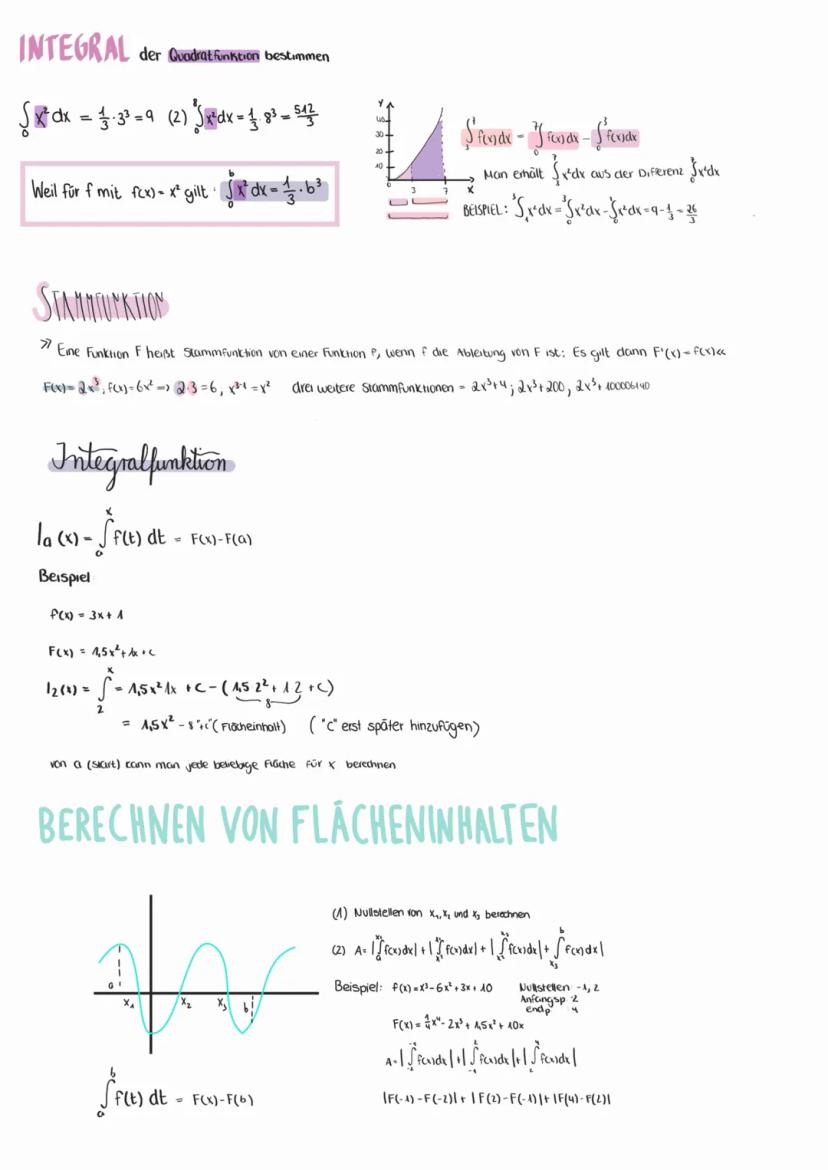 INTEGRAL der Quadratfunktion bestimmen
∫₀ x² dx = 1/3 · 3³ = 9 (2) ∫₀⁸ x² dx = 1/3 · 8³ = 512/3
Weil für f mit f(x) = x² gilt: ∫₀ᵇ x² dx = 1/3 · b³
y
40
30
20
10
0 3 7 x
∫₃⁷ f(x) dx = ∫₀⁷ f(x) dx - ∫₀³ f(x) dx
Man erhält ∫ x² dx aus der Differenz ∫ x² dx
BEISPIEL: ∫₁³ x² dx = ∫₀³ x² dx - ∫₀¹ x² dx = 9 - 1/3 = 26/3
STAMMFUNKTION
» Eine Funktion F heißt Stammfunktion von einer Funktion f, wenn f die Ableitung von F ist: Es gilt dann F'(x) = f(x) «
F(x) = 2x³, f(x) = 6x² => 2·3 = 6, x³⁻¹ = x² drei weitere Stammfunktionen = 2x³+4 ; 2x³+200, 2x³+ 100006140
Integralfunktion
Ia (x) = ∫ₐˣ f(t) dt = F(x)-F(a)
Beispiel
f(x) = 3x + 1
F(x) = 1,5x² + 1x + c
I2(x) = ∫₂ˣ = 1,5x² 1x + C - ( 1,5 2² + 1 2 + C)
8
= 1,5x² - 8 "+c" ( Flächeinhalt) ( "C" erst später hinzufügen)
von a (start) kann man jede beliebige Fläche für x berechnen
BERECHNEN VON FLÄCHENINHALTEN
a x₁ x₂ x₃ b
(1) Nullstellen von x₁, x₂ und x₃ berechnen
(2) A = |∫ₐ^x₁ f(x)dx| + |∫ f(x)dx| + |∫ f(x)dx| + ∫_x₃^b f(x)dx|
Beispiel: f(x) = x³ - 6x² + 3x + 10 Nullstellen: -1, 2
Anfangsp. 2
endp 4
F(x) = 1/4 x⁴ - 2x³ + 1,5x² + 10x
A = |∫ f(x)dx| + |∫₋₁² f(x)dx| + |∫₂⁴ f(x)dx|
∫ₐᵇ f(t) dt = F(x)-F(b)
|F(-1) - F(-2)| + |F(2) - F(-1)| + |F(4) - F(2)|